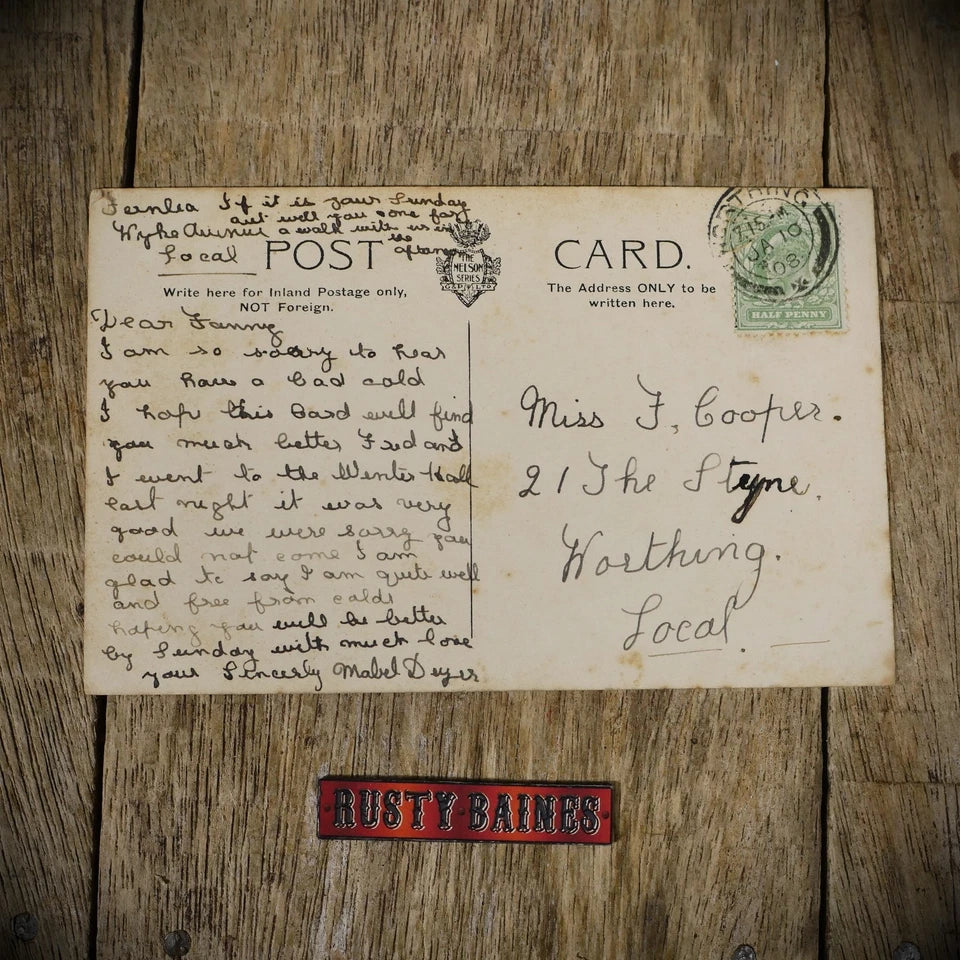 Fernlea If it is your Sunday
out will you come for
Wyke Avenue a walk with us in
the
Local
afternoon
POST CARD.
THE
NELSON
SERIES
Write here for Inland Postage only,
NOT Foreign.
The Address ONLY to be
written here.
WORTHING
7.15 PM
JA 10
08
HALF PENNY
Dear Fanny
I am so sorry to hear
you have a bad cold
I hope this Card will find
you much better Fred and
I went to the Winter Hall
last night it was very
good we were sorry you
could not come I am
glad to say I am quite well
and free from colds
hoping you will be better
by Sunday with much love
your Sincerly Mabel
Miss F. Cooper.
21 The Steyne.
Worthing.
Local.
RUSTY BAINES